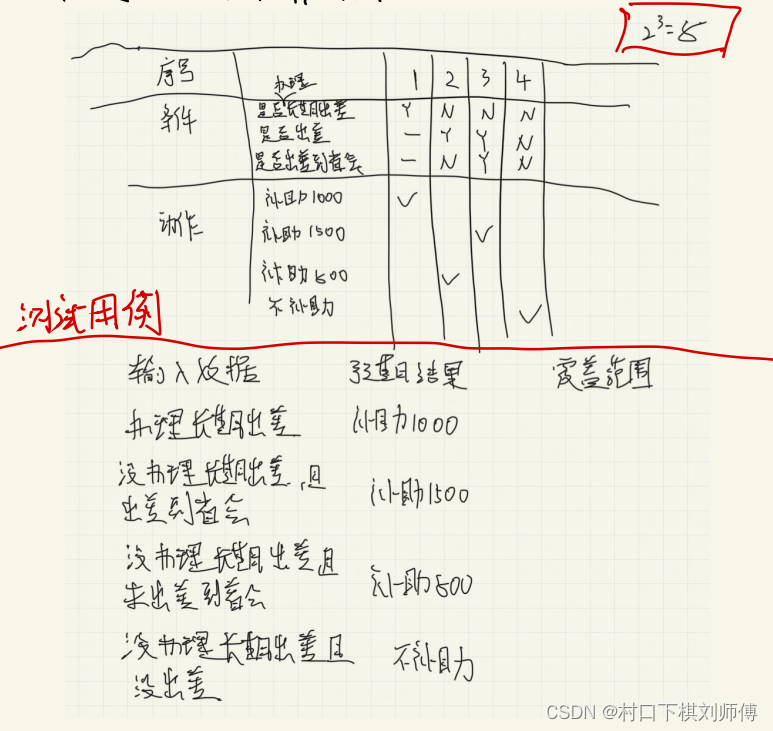 2³=8
序号 办理 1 2 3 4
条件 是否长期出差 Y N N N
是否出差 — Y Y N
是否出差到省会 — N Y N
动作 补助1000 ✓
补助1500 ✓
补助500 ✓
不补助 ✓
测试用例
输入数据 预期结果 覆盖范围
办理长期出差 补助1000
没办理长期出差,且
出差到省会 补助1500
没办理长期出差,且
未出差到省会 补助500
没办理长期出差且
没出差 不补助
CSDN @村口下棋刘师傅